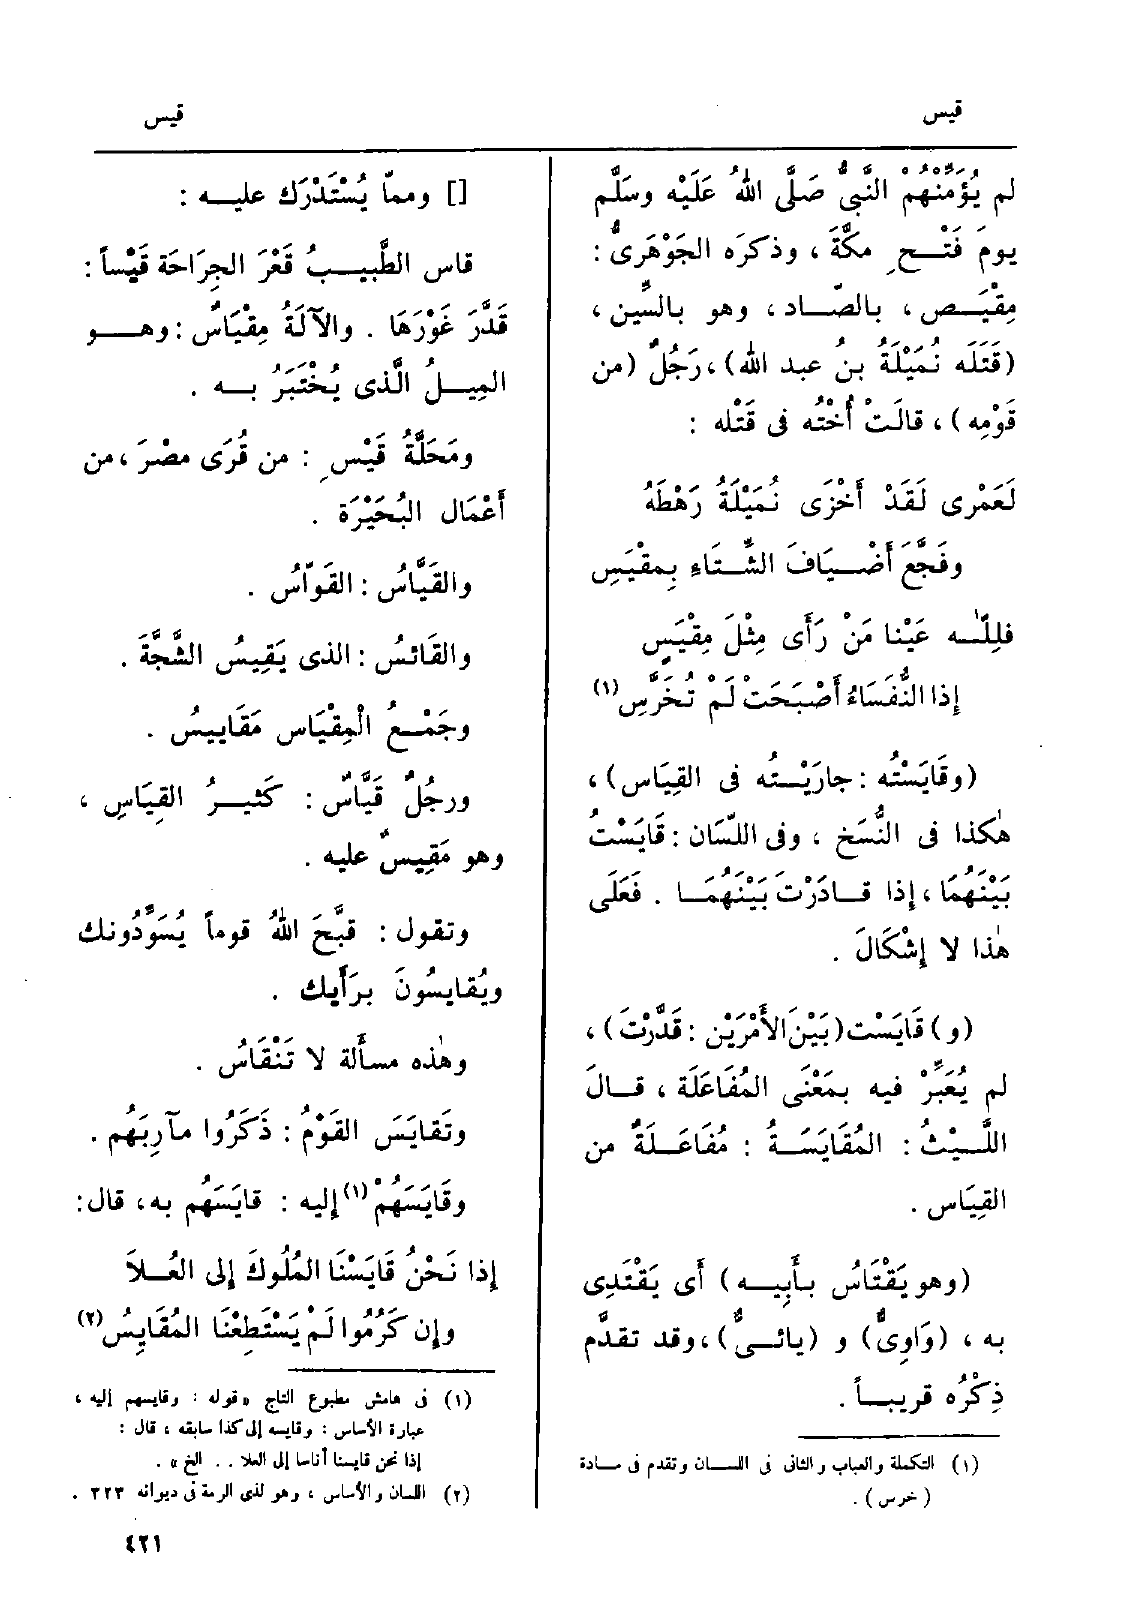 قيس
قيس
لم يُؤَمِّنْهُمْ النَّبِىُّ صَلَّى اللهُ عَلَيْه وسَلَّم
يومَ فَتْـحِ مكَّةَ ، وذكرَه الجَوْهَرِىُّ :
مِقْيَـص ، بالصّـاد ، وهو بالسِّين ،
(قَتَلَه نُمَيْلَةُ بنُ عبد الله) ، رَجُلٌ (من
قَوْمِه) ، قالَتْ أُخْتُه فى قَتْله :
لَعَمْرى لَقَدْ أَخْزَى نُمَيْلَةُ رَهْطَهُ
وفَجَّعَ أَضْـيَافَ الشِّتَاءِ بِمقْيَسِ
فلِلّٰـه عَيْنا مَنْ رَأَى مِثْلَ مِقْيَسٍ
إذا النُّفَسَاءُ أَصْبَحَتْ لَمْ تُخَرَّسِ (١)
(وقَايَسْتُه : جارَيْـتُه فى القِيَاس) ،
هٰكذا فى النُّسَخ ، وفى اللسَان : قَايَسْتُ
بَيْنَهُمَا ، إذا قـادَرْتَ بَيْنَهُمَـا . فَعَلَى
هٰذا لا إِشْكَالَ .
(و) قَايَسْت (بَيْنَ الأَمْرَيْن : قَدَّرْتَ) ،
لم يُعَبِّرْ فيه بمَعْنَى المُفَاعَلَة ، قـالَ
اللَّـيْثُ : المُقَايَسَـةُ : مُفَاعَـلَةٌ من
القِيَاس .
(وهو يَقْتَاسُ بـأَبِيـه) أَى يَقْتَدِى
به ، (وَاوِىٌّ) و (يائـىٌّ) ، وقد تقدَّم
ذِكْرُه قريبـاً .
(١) التكملة والعباب والثانى فى اللسـان وتقدم فى مـادة
( خرس ) .
[] وممّا يُسْتَدْرَك عليـه :
قاس الطَّبِيـبُ قَعْرَ الجِرَاحَة قَيْساً :
قَدَّرَ غَوْرَهَا . والآلَةُ مِقْيَاسٌ : وهـو
المِيـلُ الَّذى يُخْتَبَرُ بـه .
ومَحَلَّةُ قَيْسٍ : من قُرَى مصْرَ ، من
أَعْمَال البُحَيْرَة .
والقَيَّاسُ : القَوّاسُ .
والقَائسُ : الذى يَقِيسُ الشَّجَّةَ .
وجَمْـعُ الْمِقْيَاس مَقَايِيسُ .
ورجُلٌ قَيَّاسٌ : كَثيـرُ القِيَاسِ ،
وهو مَقِيسٌ عليه .
وتقول : قبَّحَ اللهُ قوماً يُسَوِّدُونك
ويُقايسُونَ برَأْيك .
وهٰذه مسأَلة لا تَنْقَاسُ .
وتَقايَسَ القَوْمُ : ذَكَرُوا مآرِبَهُم .
وقَايَسَهُمْ (١) إليه : قايَسَهُم به ، قال :
إذا نَحْنُ قَايَسْنَا المُلُوكَ إلى العُـلاَ
وإن كَرُمُوا لَمْ يَسْتَطِعْنَا المُقَايِسُ (٢)
(١) فى هامش مطبوع التاج «قوله : وقايسهم إليه ،
عبارة الأساس : وقايسه إلى كذا سابقه ، قال :
إذا نحن قايسنا أناسا إلى العلا . . الخ » .
(٢) اللسان والأساس ، وهو لذى الرمة فى ديوانه ٣٢٣ .
٤٢١